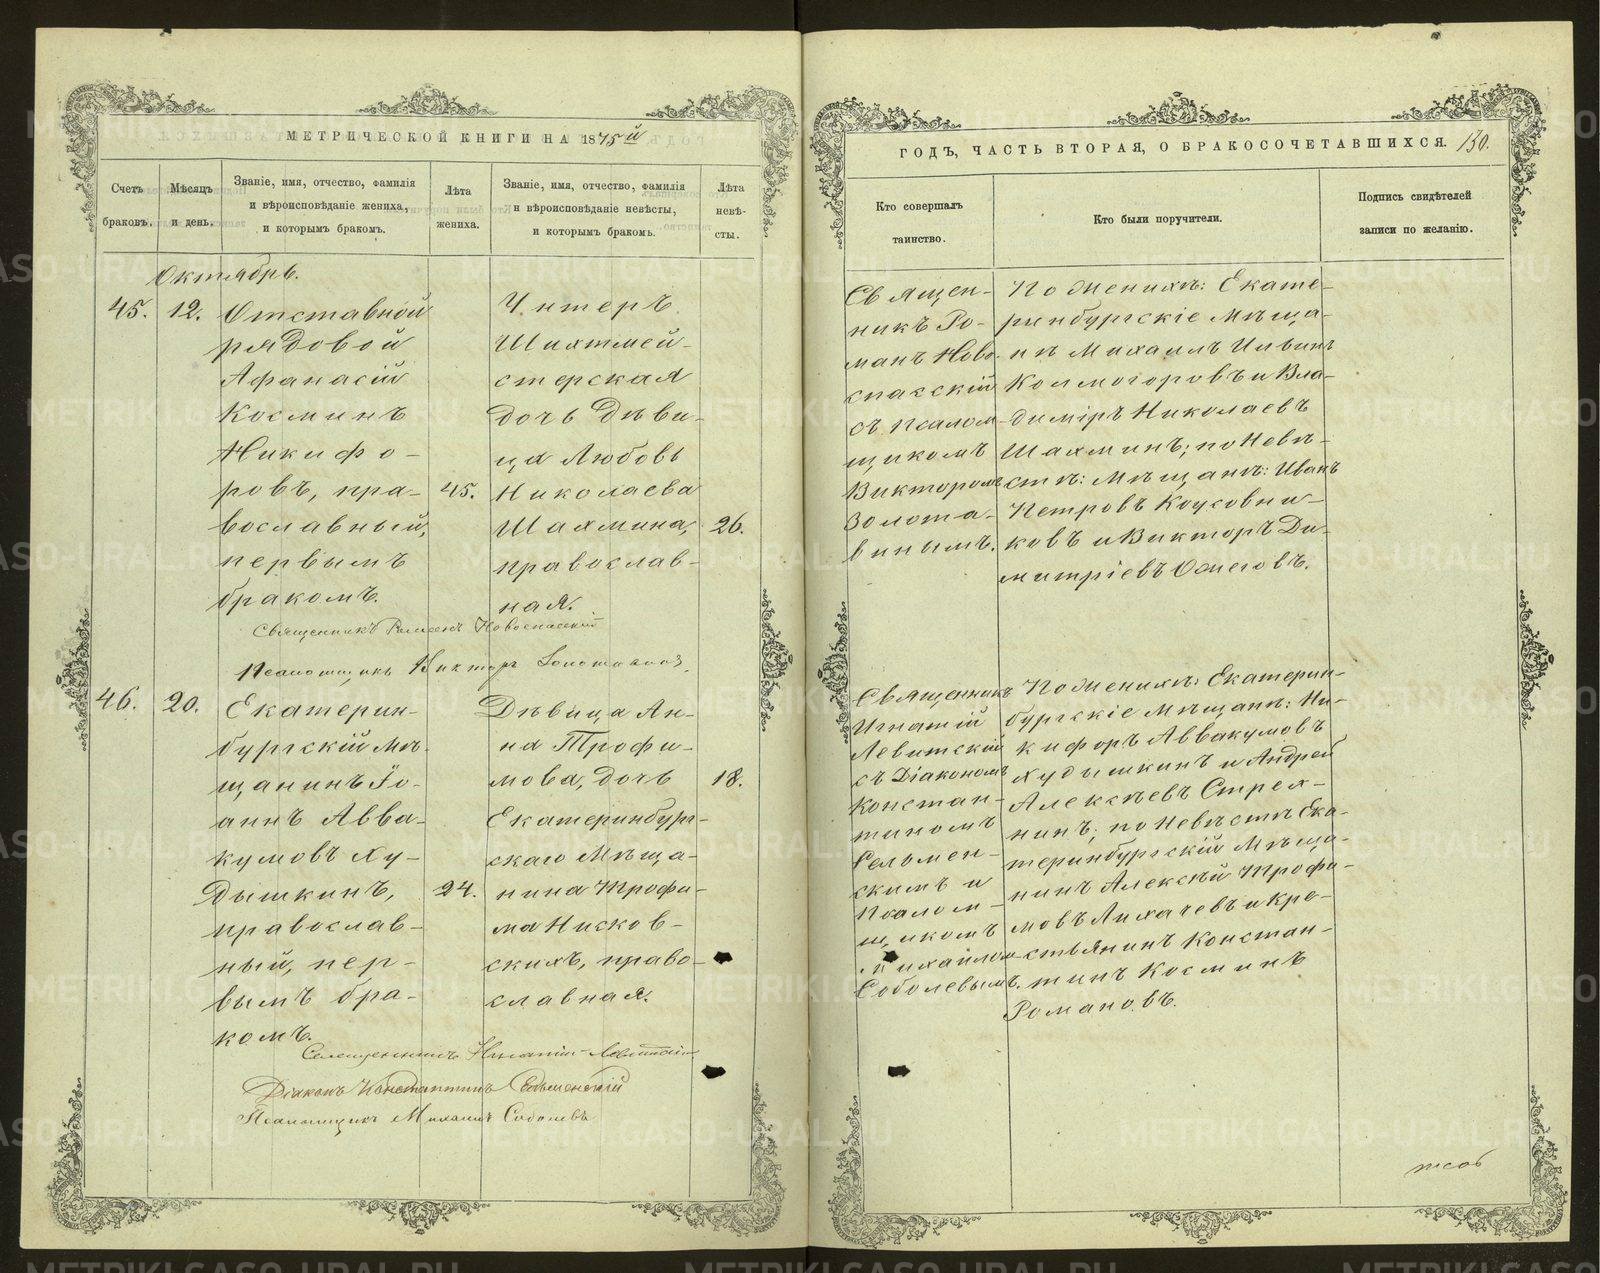 МЕТРИЧЕСКОЙ КНИГИ НА 1875й
Счетъ браковъ.
Мѣсяцъ и день.
Званіе, имя, отчество, фамилія
и вѣроисповѣданіе жениха,
и которымъ бракомъ.
Лѣта жениха.
Званіе, имя, отчество, фамилія
и вѣроисповѣданіе невѣсты,
и которымъ бракомъ.
Лѣта невѣ-
сты.
Октябрь.
45.
12.
Отставной
рядовой
Афанасій
Косминъ
Никифо-
ровъ, пра-
вославный,
первымъ
бракомъ.
45.
Унтеръ
Шихтмей-
стерская
дочь Дѣви-
ца Любовь
Николаева
Шахмина,
православ-
ная.
26.
Священникъ Романъ Новоспасскій
Псаломщикъ Викторъ Золотавинъ.
46.
20.
Екатерин-
бургскій Мѣ-
щанинъ Іо-
аннъ Авва-
кумовъ Ху-
дышкинъ,
православ-
ный, пер-
вымъ бра-
комъ.
24.
Дѣвица Ан-
на Трофи-
мова, дочь
Екатеринбург-
скаго Мѣща-
нина Трофи-
ма Нисков-
скихъ, право-
славная.
18.
Священникъ Игнатій Левитскій
Діаконъ Константинъ Сельменскій
Псаломщикъ Михаилъ Соболевъ
ГОДЪ, ЧАСТЬ ВТОРАЯ, О БРАКОСОЧЕТАВШИХСЯ.
130.
Кто совершалъ
таинство.
Кто были поручители.
Подпись свидѣтелей
записи по желанію.
Священ-
никъ Ро-
манъ Ново-
спасскій
съ псалом-
щикомъ
Викторомъ
Золота-
винымъ.
По Женихѣ: Екате-
ринбургскіе Мѣща-
не Михаилъ Ильинъ
Колмогоровъ и Вла-
диміръ Николаевъ
Шахминъ; по Невѣ-
стѣ: Мѣщане: Иванъ
Петровъ
ковъ и Викторъ Ди-
митріевъ Ожеговъ.
Священникъ
Игнатій
Левитскій
съ Діакономъ
Констан-
тиномъ
Сельмен-
скимъ и
Псалом-
щикомъ
Михаиломъ
Соболевымъ.
По Женихѣ: Екатерин-
бургскіе Мѣщане: Ни-
кифоръ Аввакумовъ
Худышкинъ и Андрей
Алексѣевъ Стрел-
нинъ; по Невѣстѣ Ека-
теринбургскій Мѣща-
нинъ Алексѣй Трофи-
мовъ Лихачевъ и Кре-
стьянинъ Констан-
тинъ Косминъ
Романовъ.
METRIKI.GASO-URAL.RU